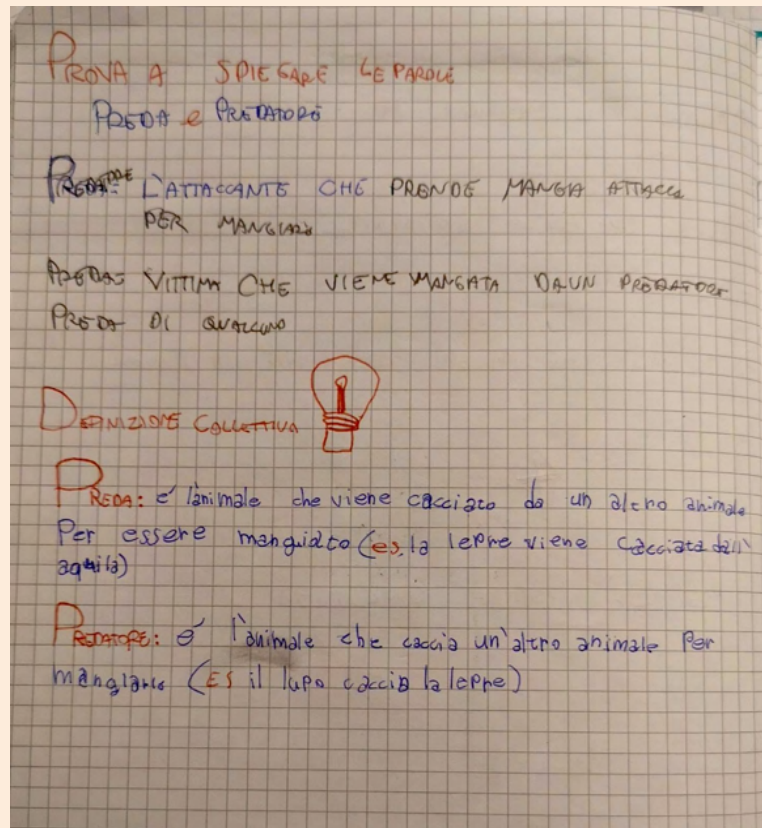 PROVA A SPIEGARE LE PAROLE
PREDA e PREDATORE
PREDATORE= L'ATTACCANTE CHE PRENDE MANGIA ATTACCA
PER MANGIARE
PREDA= VITTIMA CHE VIENE MANGATA DA UN PREDATORE
PREDA DI QUALCUNO
DEFINIZIONE COLLETTIVA
PREDA: é l'animale che viene cacciato da un altro animale
Per essere mangiato (es. la lepre viene cacciata dall'
aquila)
PREDATORE: é l'animale che caccia un'altro animale Per
mangiarlo (ES il lupo caccia la lepre)